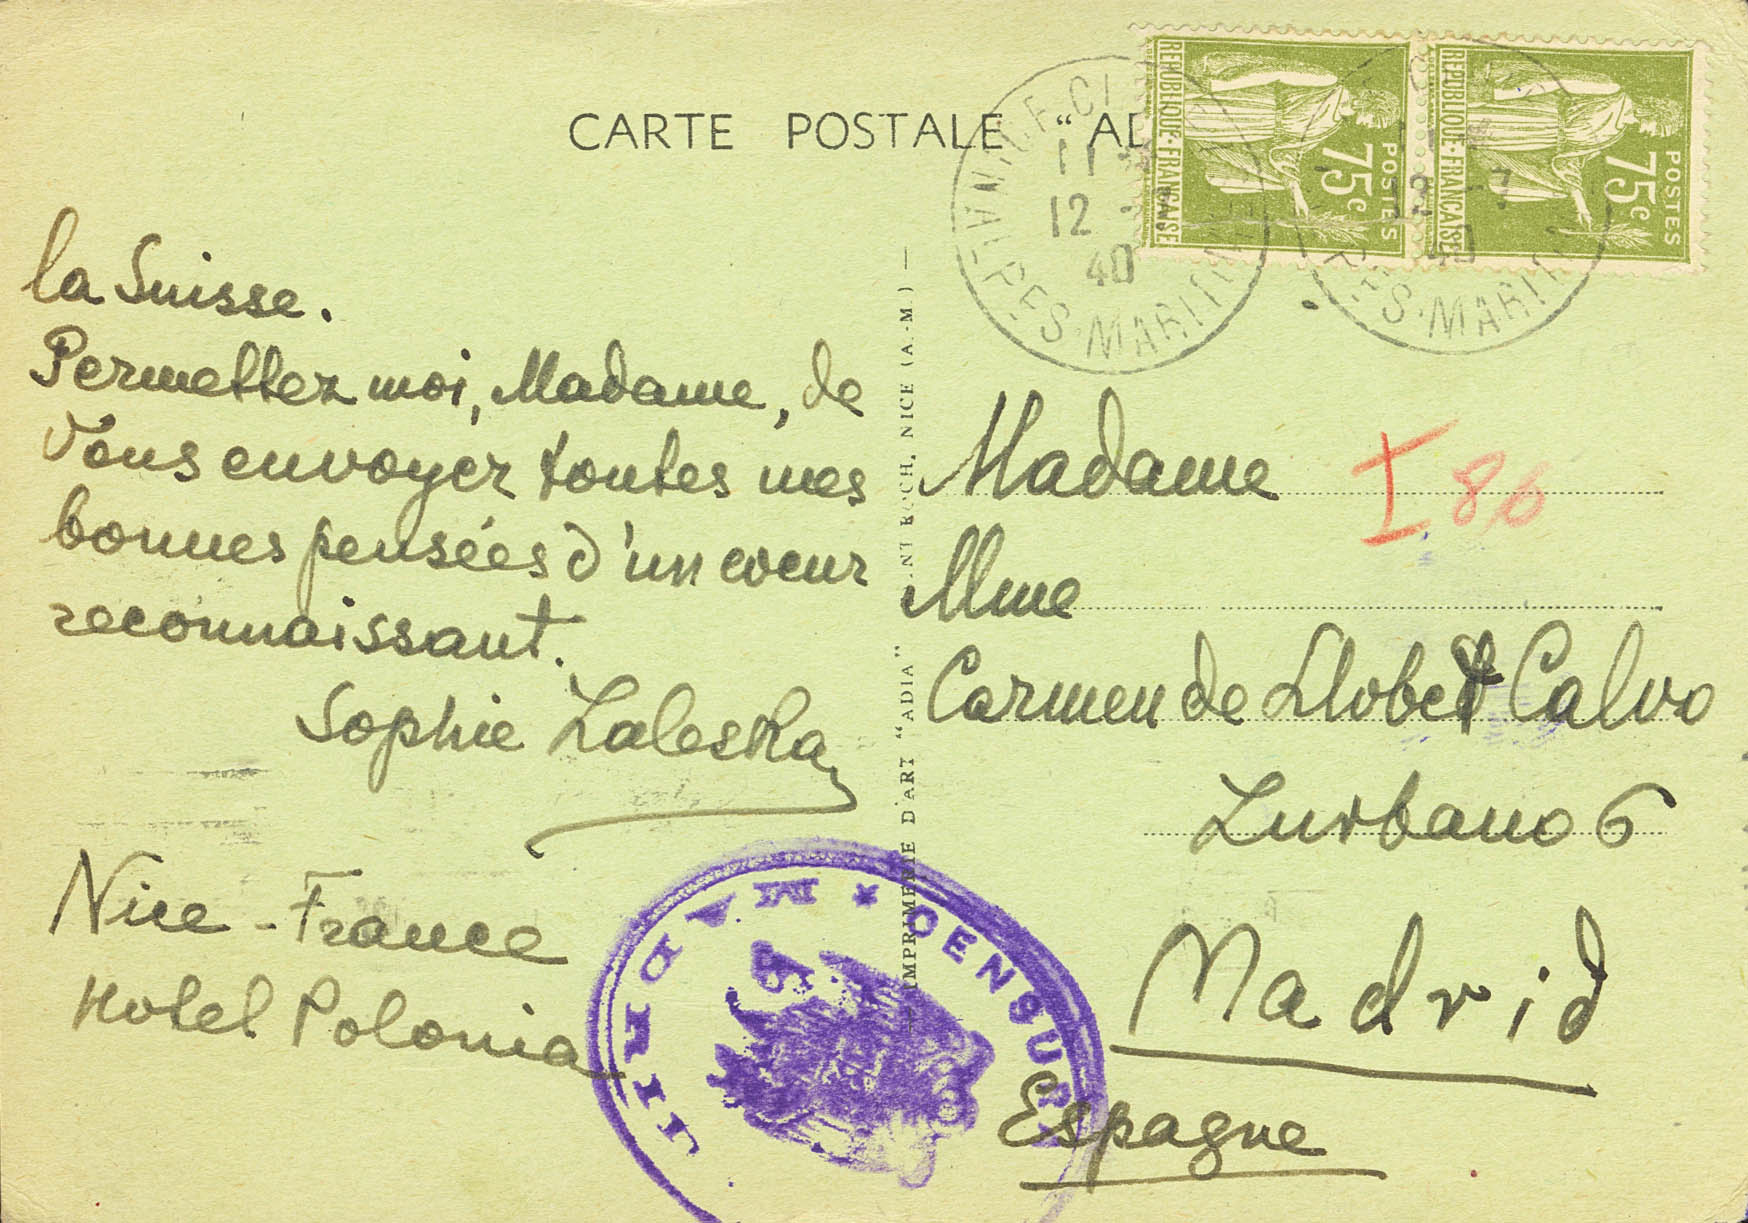 CARTE POSTALE "AD
REPUBLIQUE·FRANÇAISE
POSTES
75c
REPUBLIQUE·FRANÇAISE
POSTES
75c
11
12
40
ALPES-MARITIMES
12 -7
40
ES-MARITI
la Suisse.
Permettez moi, Madame, de
Vous envoyer toutes mes
bonnes pensées d'un coeur
reconnaissant.
Sophie Zaleska
Nice - France
Hotel Polonia
IMPRIMERIE D'ART "ADIA" NICE (A.-M.)
Madame
I 86
Mme
Carmen de Llobet Calvo
Zurbano 6
Madrid
Espagne
CENSURA * MADRID